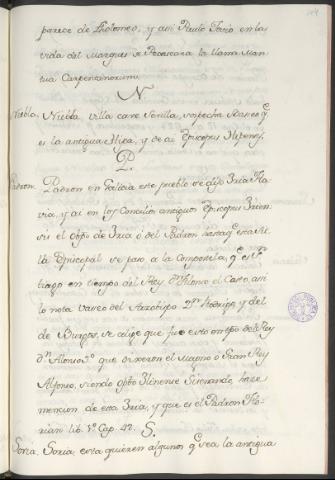 parece de Ptolomeo, y asi Paulo Jovio en la
vida del Marques de Pescara la llama Man
tua Carpentanorum.
N
Niebla. Niebla villa cave Sevilla, sospecha Vaseo q.e
es la antigua Elipa, y de ai Episcopus Eliponsis.
P.
Padron. Padron en Galicia este pueblo se dijo Iria Fla
via, y ai en los Concilios antiguos Episcopus Irien
sis el obpo de Iria ó del Padron hasta q.e esta Si
lla Episcopal se paso a la Compostela, q.e es S.n
tiago en tiempo del Rey D.n Alonso el Casto, asi
lo nota Vaseo del Arzobispo D.n Rodrigo, y del
de Burgos, se colige que fue esto en tpo del Rey
D.n Alonso 3.o que dixeron el Magno ó Gran Rey
Alfonso, siendo obpo Iliense Sisenando, haze
mencion de esta Iria, y que es el Padron Flo
rian lib. 1.o Cap. 42.
S.
Soria. Soria esta quieren algunos q.e sea la antigua